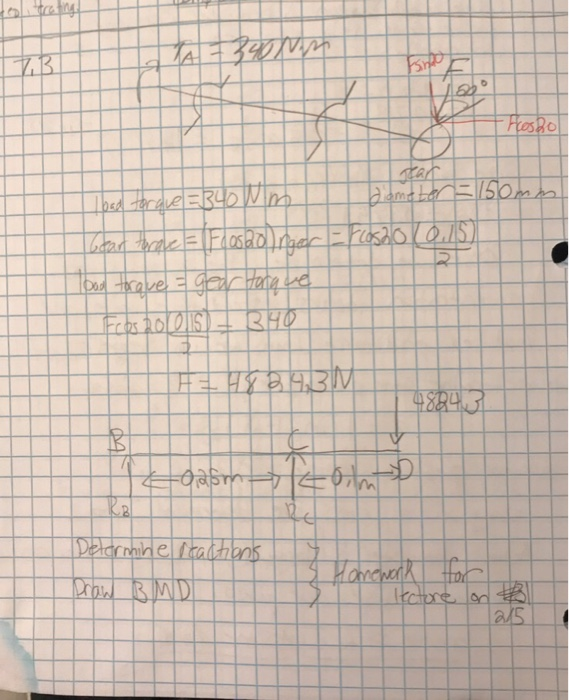 7.3
TA = 340 N·m
Fsin20
F
50°
Fcos20
gear
diameter = 150mm
load torque = 340 N m
Gear torque = (Fcos20) rger = Fcos20 (0.15)
2
load torque = gear torque
Fcos20(0.15) = 340
2
F = 4824.3N
4824.3
B
C
D
0.25m
0.1m
RB
RC
Determine reactions
Draw BMD
Homework for
lecture on
2/5